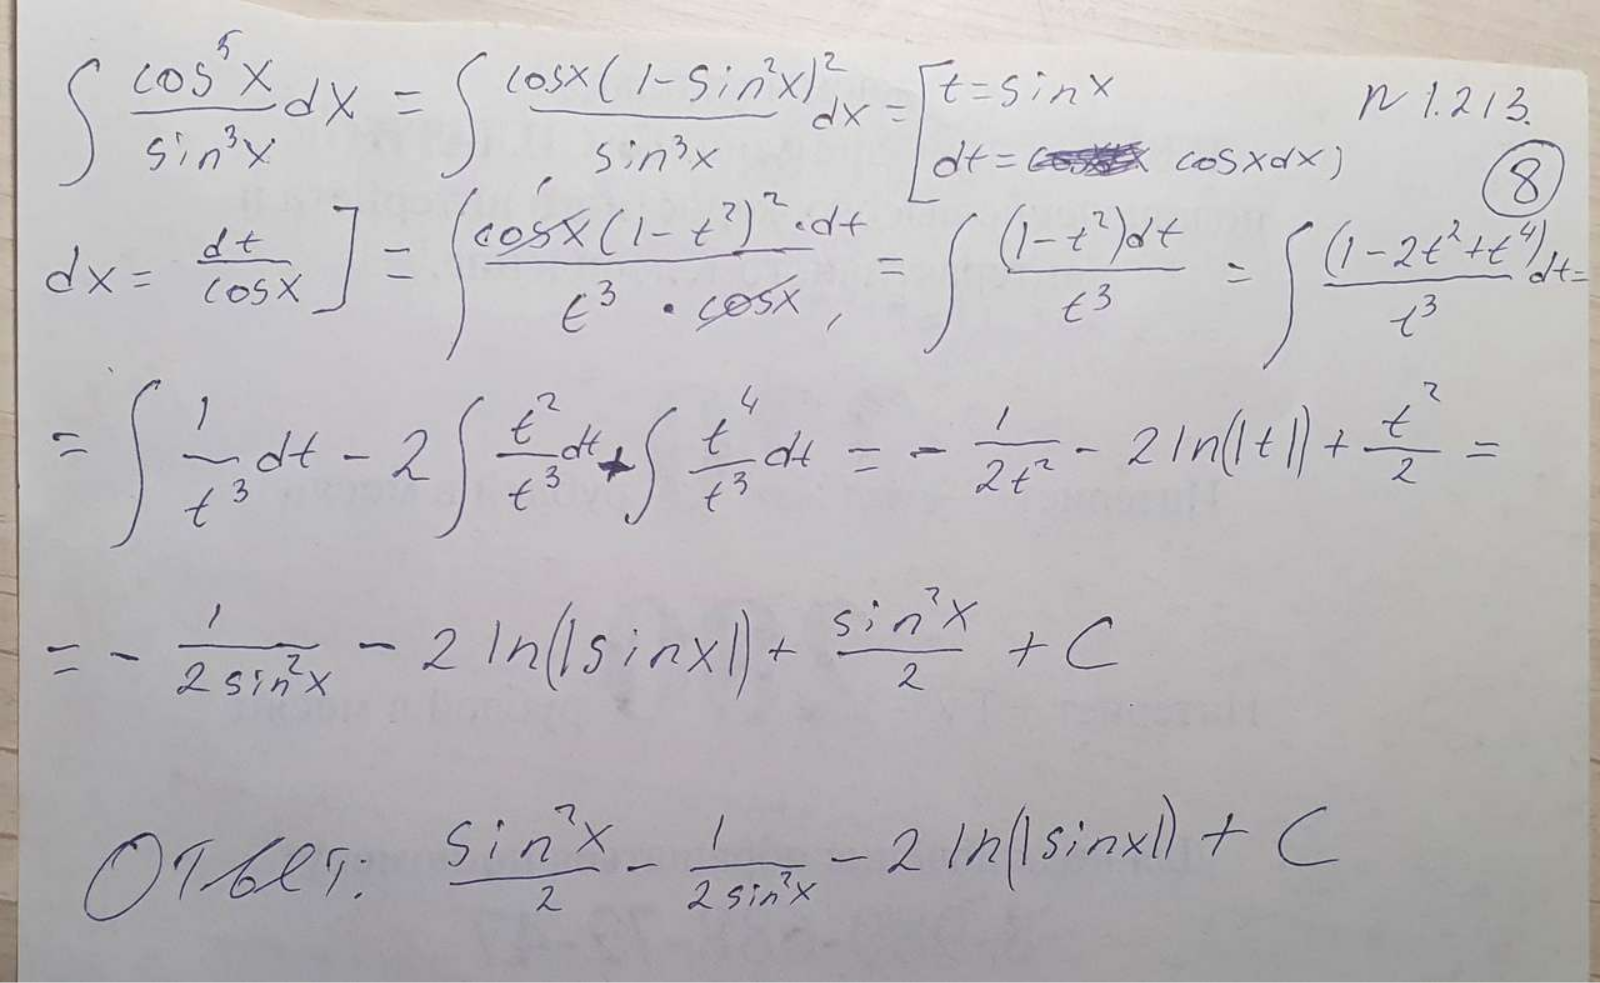 ∫ cos⁵x/sin³x dx = ∫ cosx(1-sin²x)²/sin³x dx = [t=sinx
dt= cosxdx;
N 1.213.
8
dx = dt/cosx] = ∫ cosx(1-t²)²·dt/t³·cosx, = ∫ (1-t²)dt/t³ = ∫ (1-2t²+t⁴)/t³ dt=
= ∫ 1/t³ dt - 2∫ t²/t³ dt + ∫ t⁴/t³ dt = - 1/2t² - 2ln(|t|) + t²/2 =
= - 1/2sin²x - 2ln(|sinx|) + sin²x/2 + C
Ответ: sin²x/2 - 1/2sin²x - 2ln(|sinx|) + C